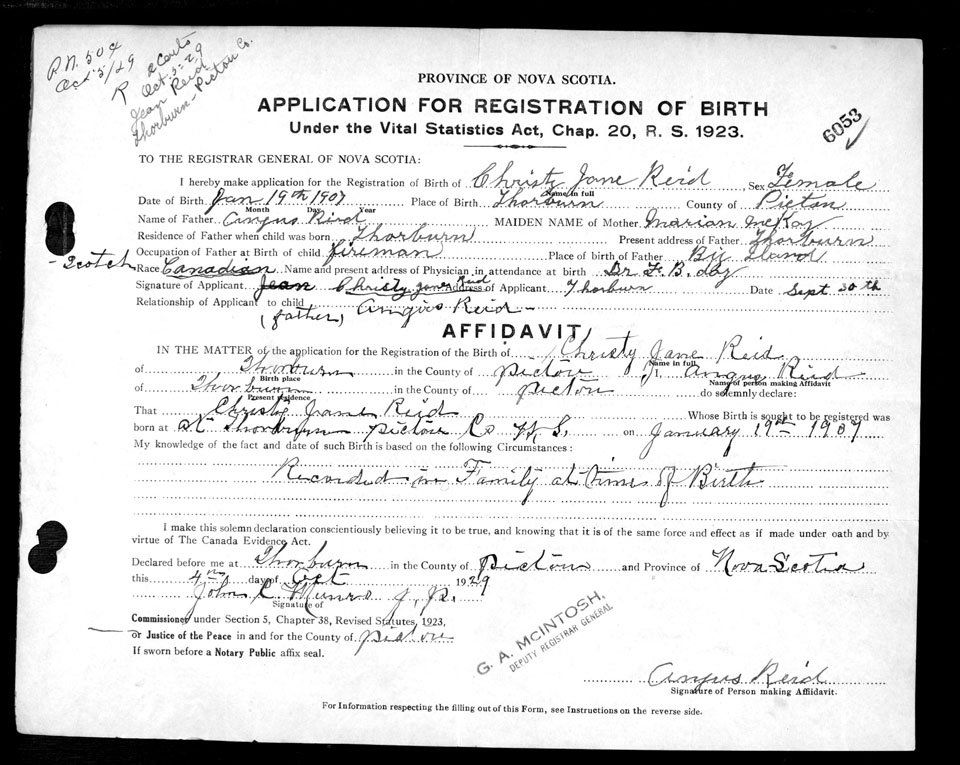 R.N. 504
Oct 5/29
R 2 Certs
Oct. 5-29
Jean Reid
Thorburn - Pictou Co.
6053
PROVINCE OF NOVA SCOTIA.
APPLICATION FOR REGISTRATION OF BIRTH
Under the Vital Statistics Act, Chap. 20, R. S. 1923.
TO THE REGISTRAR GENERAL OF NOVA SCOTIA:
I hereby make application for the Registration of Birth of Christy Jane Reid Sex Female
Name in full
Date of Birth Jan 19th 1909 Place of Birth Thorburn County of Pictou
Month Day Year
Name of Father Angus Reid MAIDEN NAME of Mother Marian McKay
Residence of Father when child was born Thorburn Present address of Father Thorburn
Occupation of Father at Birth of child fireman Place of birth of Father Big Island
- Scotch
Race Canadian Name and present address of Physician in attendance at birth Dr F. B. Day
Signature of Applicant Jean Christy Jane Reid Address of Applicant Thorburn Date Sept 30th
Relationship of Applicant to child Angus Reid
(father)
AFFIDAVIT
IN THE MATTER of the application for the Registration of the Birth of Christy Jane Reid
Name in full
of Thorburn in the County of Pictou I, Angus Reid
Birth place Name of person making Affidavit
of Thorburn in the County of Pictou do solemnly declare:
Present residence
That Christy Jane Reid Whose Birth is sought to be registered was
born at At Thorburn Pictou Co N. S. on January 19th 1909
My knowledge of the fact and date of such Birth is based on the following Circumstances:
Recorded in Family at times of Birth
I make this solemn declaration conscientiously believing it to be true, and knowing that it is of the same force and effect as if made under oath and by
virtue of The Canada Evidence Act.
Declared before me at Thorburn in the County of Pictou and Province of Nova Scotia
this 4th day of Oct 1929
John C. Munro J. P.
Signature of
Commissioner under Section 5, Chapter 38, Revised Statutes, 1923,
or Justice of the Peace in and for the County of Pictou
If sworn before a Notary Public affix seal.
G. A. McINTOSH,
DEPUTY REGISTRAR GENERAL
Angus Reid
Signature of Person making Affidavit.
For Information respecting the filling out of this Form, see Instructions on the reverse side.